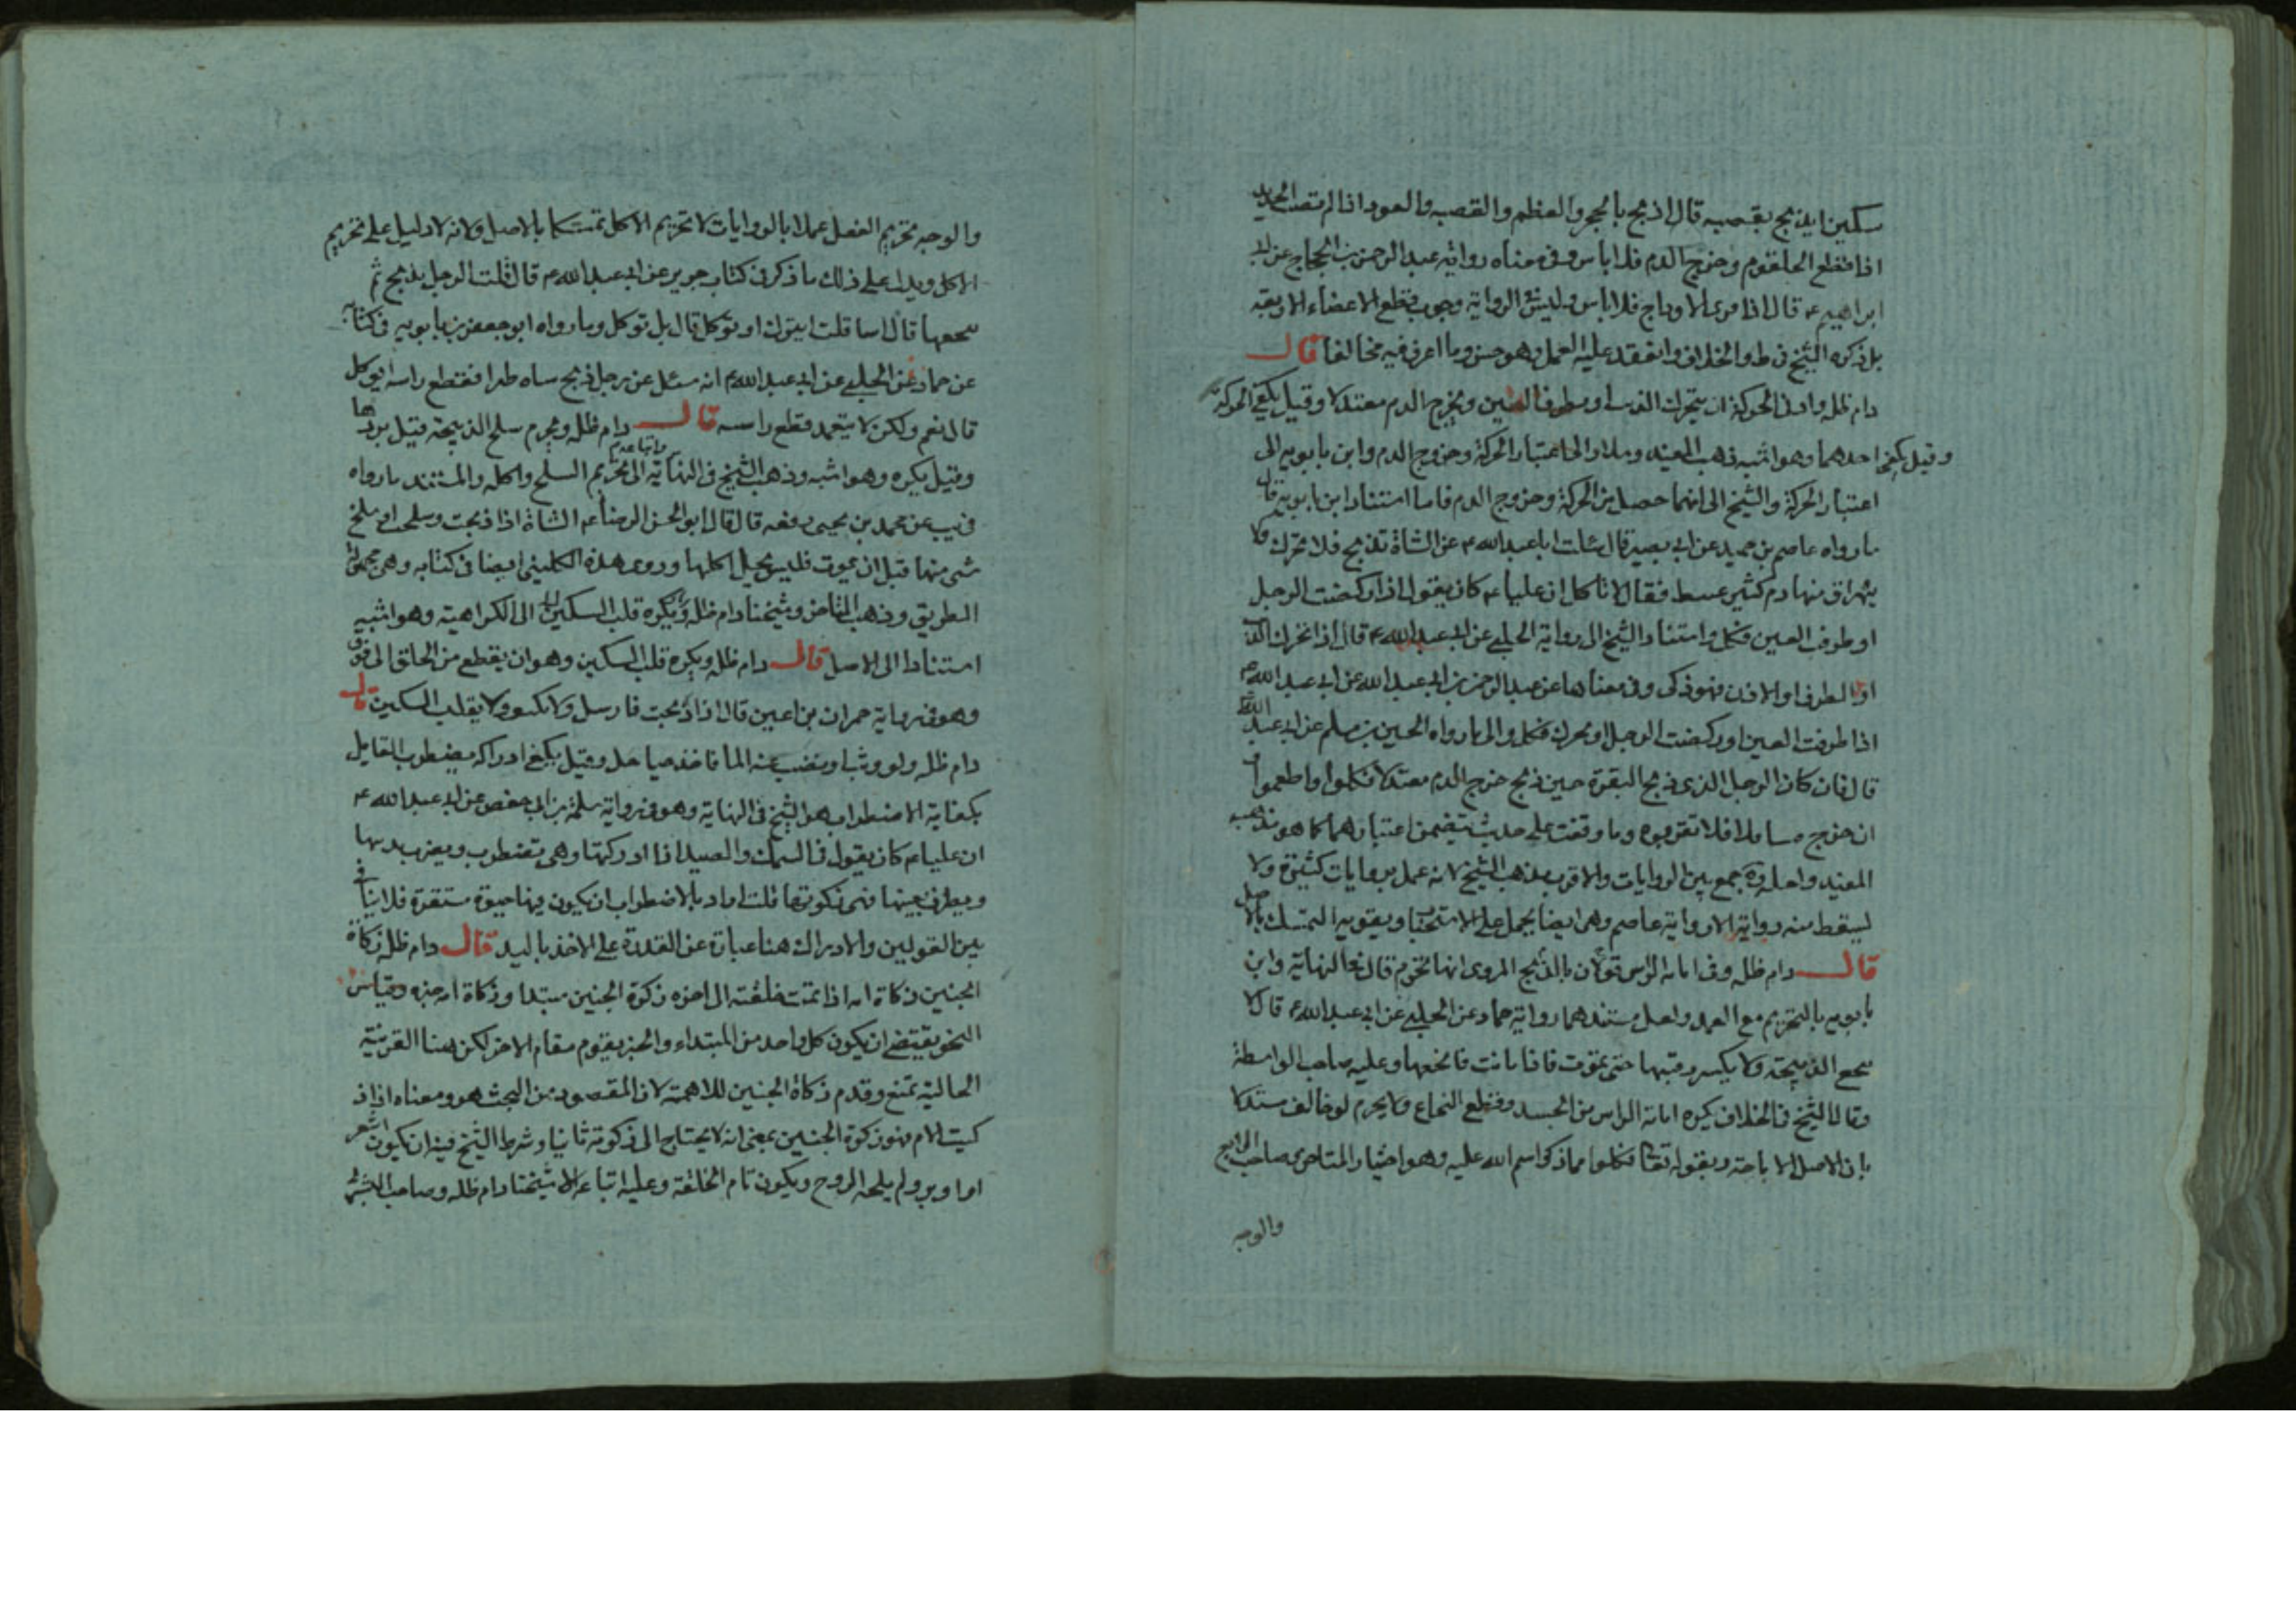 سكين ايذبح بقصبه قال اذبح بالحجر والعظم والقصبه والعود اذا لم تصب الحديد
اذا قطع الحلقوم وخرج الدم فلا باس وفى معناه رواية عبد الرحمن بن الحجاج عن ابى
ابراهيم ع قال اذا فرى الاوداج فلا باس وليس فى الرواية وجوب قطع الاعضاء الاربعة
بل ذكره الشيخ فى ط والخلاف وانعقد عليه العمل وهو حسن وما اعرف فيه مخالفا قال
دام ظله وادنى الحركة ان يتحرك الذنب او يطرف العين ويخرج الدم معتدلا وقيل يكفى الحركة
وقيل يكفى احدهما وهو اشبه ذهب المفيد وسلار الى اعتبار الحركة وخروج الدم وابن بابويه الى
اعتبار الحركة والشيخ الى ايهما حصل من الحركة وخروج الدم فاما استناد ابن بابويه فال
ما رواه عاصم بن حميد عن ابى بصير قال سئلت ابا عبد الله ع عن الشاة تذبح فلا تتحرك ولا
يهراق منها دم كثير عبيط فقال لا تاكل ان عليا ع كان يقول اذا ركضت الرجل
او طرفت العين فكل واستناد الشيخ الى رواية الحلبى عن ابى عبد الله ع قال اذا تحرك الذنب
او الطرف او الاذن فهو ذكى وفى معناها عن عبد الرحمن بن ابى عبد الله عن ابى عبد الله ع
اذا طرفت العين او ركضت الرجل او تحرك فكل والى ما رواه الحسين بن مسلم عن ابى عبد الله
قال فان كان الرجل الذى ذبح البقرة حين ذبح خرج الدم معتدلا فكلوا واطعموا
ان خرج متثاقلا فلا تقربوه وما وقفت على حديث يتضمن اعتبارهما كما هو مذهب
المفيد ولعله جمع بين الروايات والاقرب مذهب الشيخ لانه عمل بروايات كثيرة ولا
يسقط منه رواية الا رواية عاصم وهى ايضا يحمل على الاستحباب ويقويه التمسك بالاصل
قال دام ظله وفى ابانة الراس قولان بالذبح المروى انها تحرم قال فى النهاية وابن
بابويه بالتحريم مع العمد ولعل مستندهما رواية حماد عن الحلبى عن ابى عبد الله ع قال لا
الذبيحة ولا يكسر رقبتها حتى تموت فاذا ماتت فانخعها وعليه صاحب الواسطة
وقال الشيخ فى الخلاف يكره ابانة الراس من الجسد وقطع النخاع ولا يحرم لو خالف مستدلا
بان الاصل الاباحة وبقوله تعالى فكلوا مما ذكر اسم الله عليه وهو اختيار المتاخر صاحب الرابع
والوجه
والوجه تحريم الفعل عملا بالروايات لا تحريم الاكل تمسكا بالاصل ولانه لا دليل على تحريم
الاكل ويدل على ذلك ما ذكر فى كتاب حريز عن ابى عبد الله ع قال قلت الرجل يذبح ثم
قال اسا قلت ايترك او تؤكل قال بل تؤكل وما رواه ابو جعفر بن بابويه فى كتابه
عن حماد عن الحلبى عن ابى عبد الله ع انه سئل عن رجل ذبح فقطع راسه ايوكل
قال نعم ولكن لا يتعمد قطع راسه قال دام ظله ويحرم سلخ الذبيحة قبل بردها
وقيل يكره وهو اشبه وذهب الشيخ فى النهاية واتباعه الى تحريم السلخ واكله والمستند ما رواه
فى يب عن محمد بن يحيى رفعه قال قال ابو الحسن الرضا ع الشاة اذا ذبحت وسلخت او سلخ
شى منها قبل ان يموت فليس يحل اكلها وروى هذه الكلينى ايضا فى كتابه وهى مجهولة
الطريق وذهب المتاخر وشيخنا دام ظله ويكره قلب السكين الى الكراهية وهو اشبه
استنادا الى الاصل قال دام ظله ويكره قلب السكين وهو ان يقطع من الحلق الى فوق
وهو فى رواية حمران بن اعين قال اذا ذبحت فارسل ولا تكتف ولا يقلب السكين قال
دام ظله ولو وثب او نضب عنه الما فاخذ حيا حل وقيل يكفى ادراكه يضطرب القايل
بكفاية الاضطراب هو الشيخ فى النهاية وهو فى رواية سلمة بن ابى حفص عن ابى عبد الله ع
ان عليا ع كان يقول فى السمك والصيد اذا ادركتها وهى تضطرب ويضرب بديها
ويطرف بعينها فهى ذكوتها قلت اراد بالاضطراب ان يكون فيها حيوة مستقرة فلا تنافى
بين القولين والادراك هنا عبارة عن القدرة على الاخذ باليد قال دام ظله زكاة
الجنين ذكاة امه اذا تمت خلقته الى اخره ذكوة الجنين مبتدا وذكاة امه خبره وقياس
النحو يقتضى ان يكون كل واحد من المبتداء والخبر يقوم مقام الاخر لكن هنا القرينة
الحالية تمنع وقدم ذكاة الجنين للاهمة لان المقصود من البحث هو ومعناه اذا ذ
كيت الام فهو ذكوة الجنين بمعنى انه لا يحتاج الى ذكوته ثانيا وشرط الشيخ فيه ان يكون اشعر
او اوبر ولم يلجه الروح ويكون تام الخلقة وعليه اتباعه الا شيخنا دام ظله وصاحب البشرى